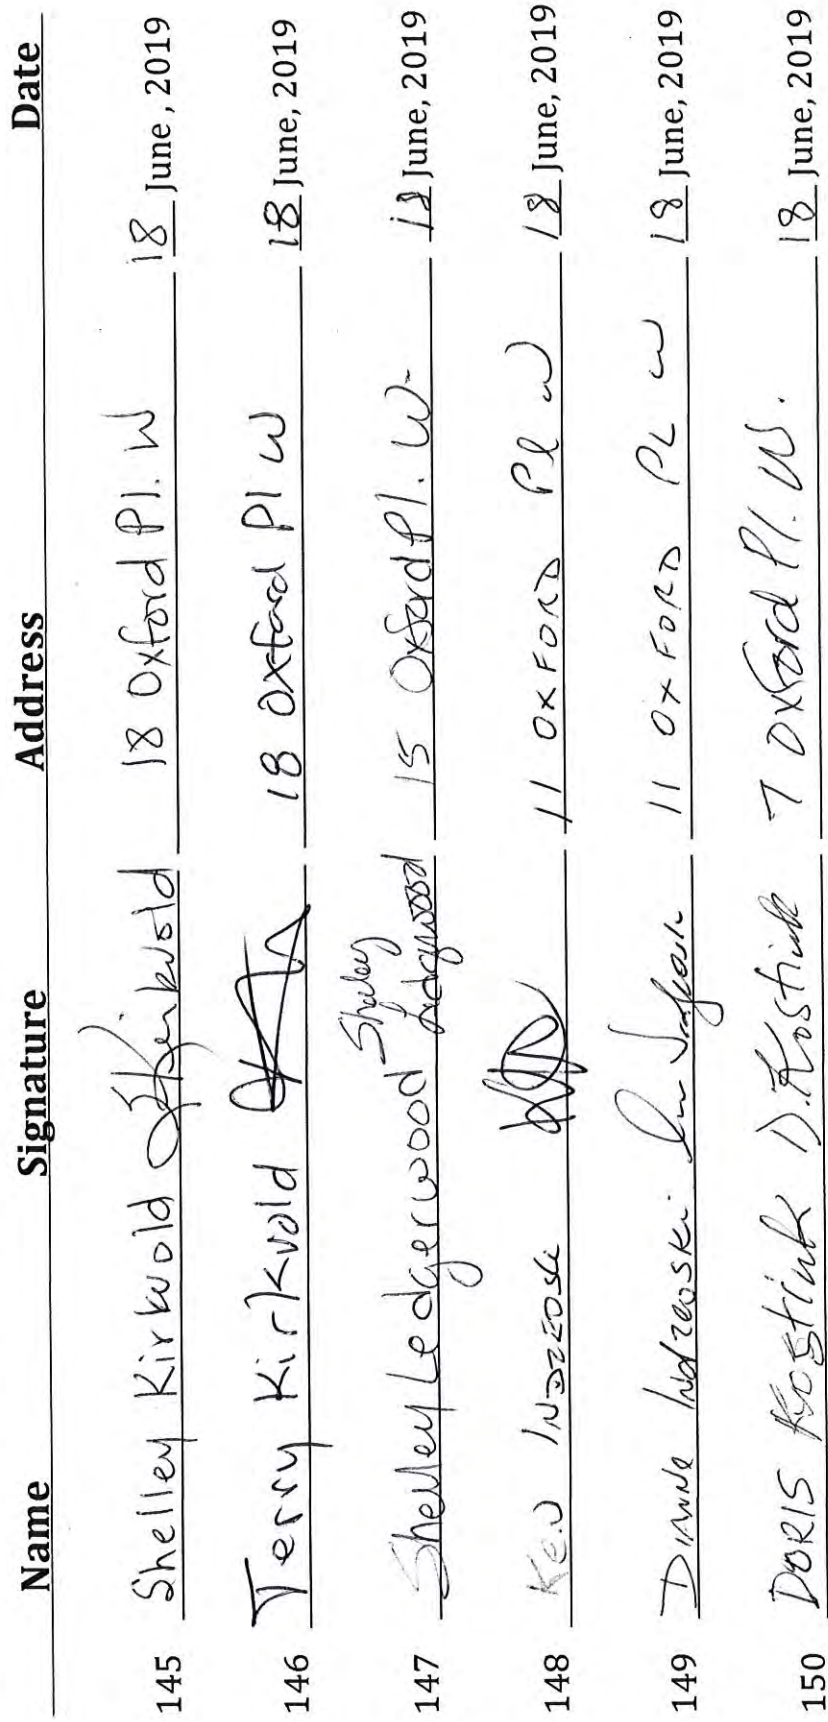 Name Signature Address Date
145 Shelley Kirkvold SKirkvold 18 Oxford Pl. W 18 June, 2019
146 Terry Kirkvold 18 Oxford Pl W 18 June, 2019
147 Shelley Ledgerwood Shelley Ledgerwood 15 Oxford Pl. W. 18 June, 2019
148 Ken 11 OXFORD Pl W 18 June, 2019
149 Dianne 11 OXFORD PL W 18 June, 2019
150 DORIS Kostiuk D. Kostiuk 7 Oxford Pl. W. 18 June, 2019